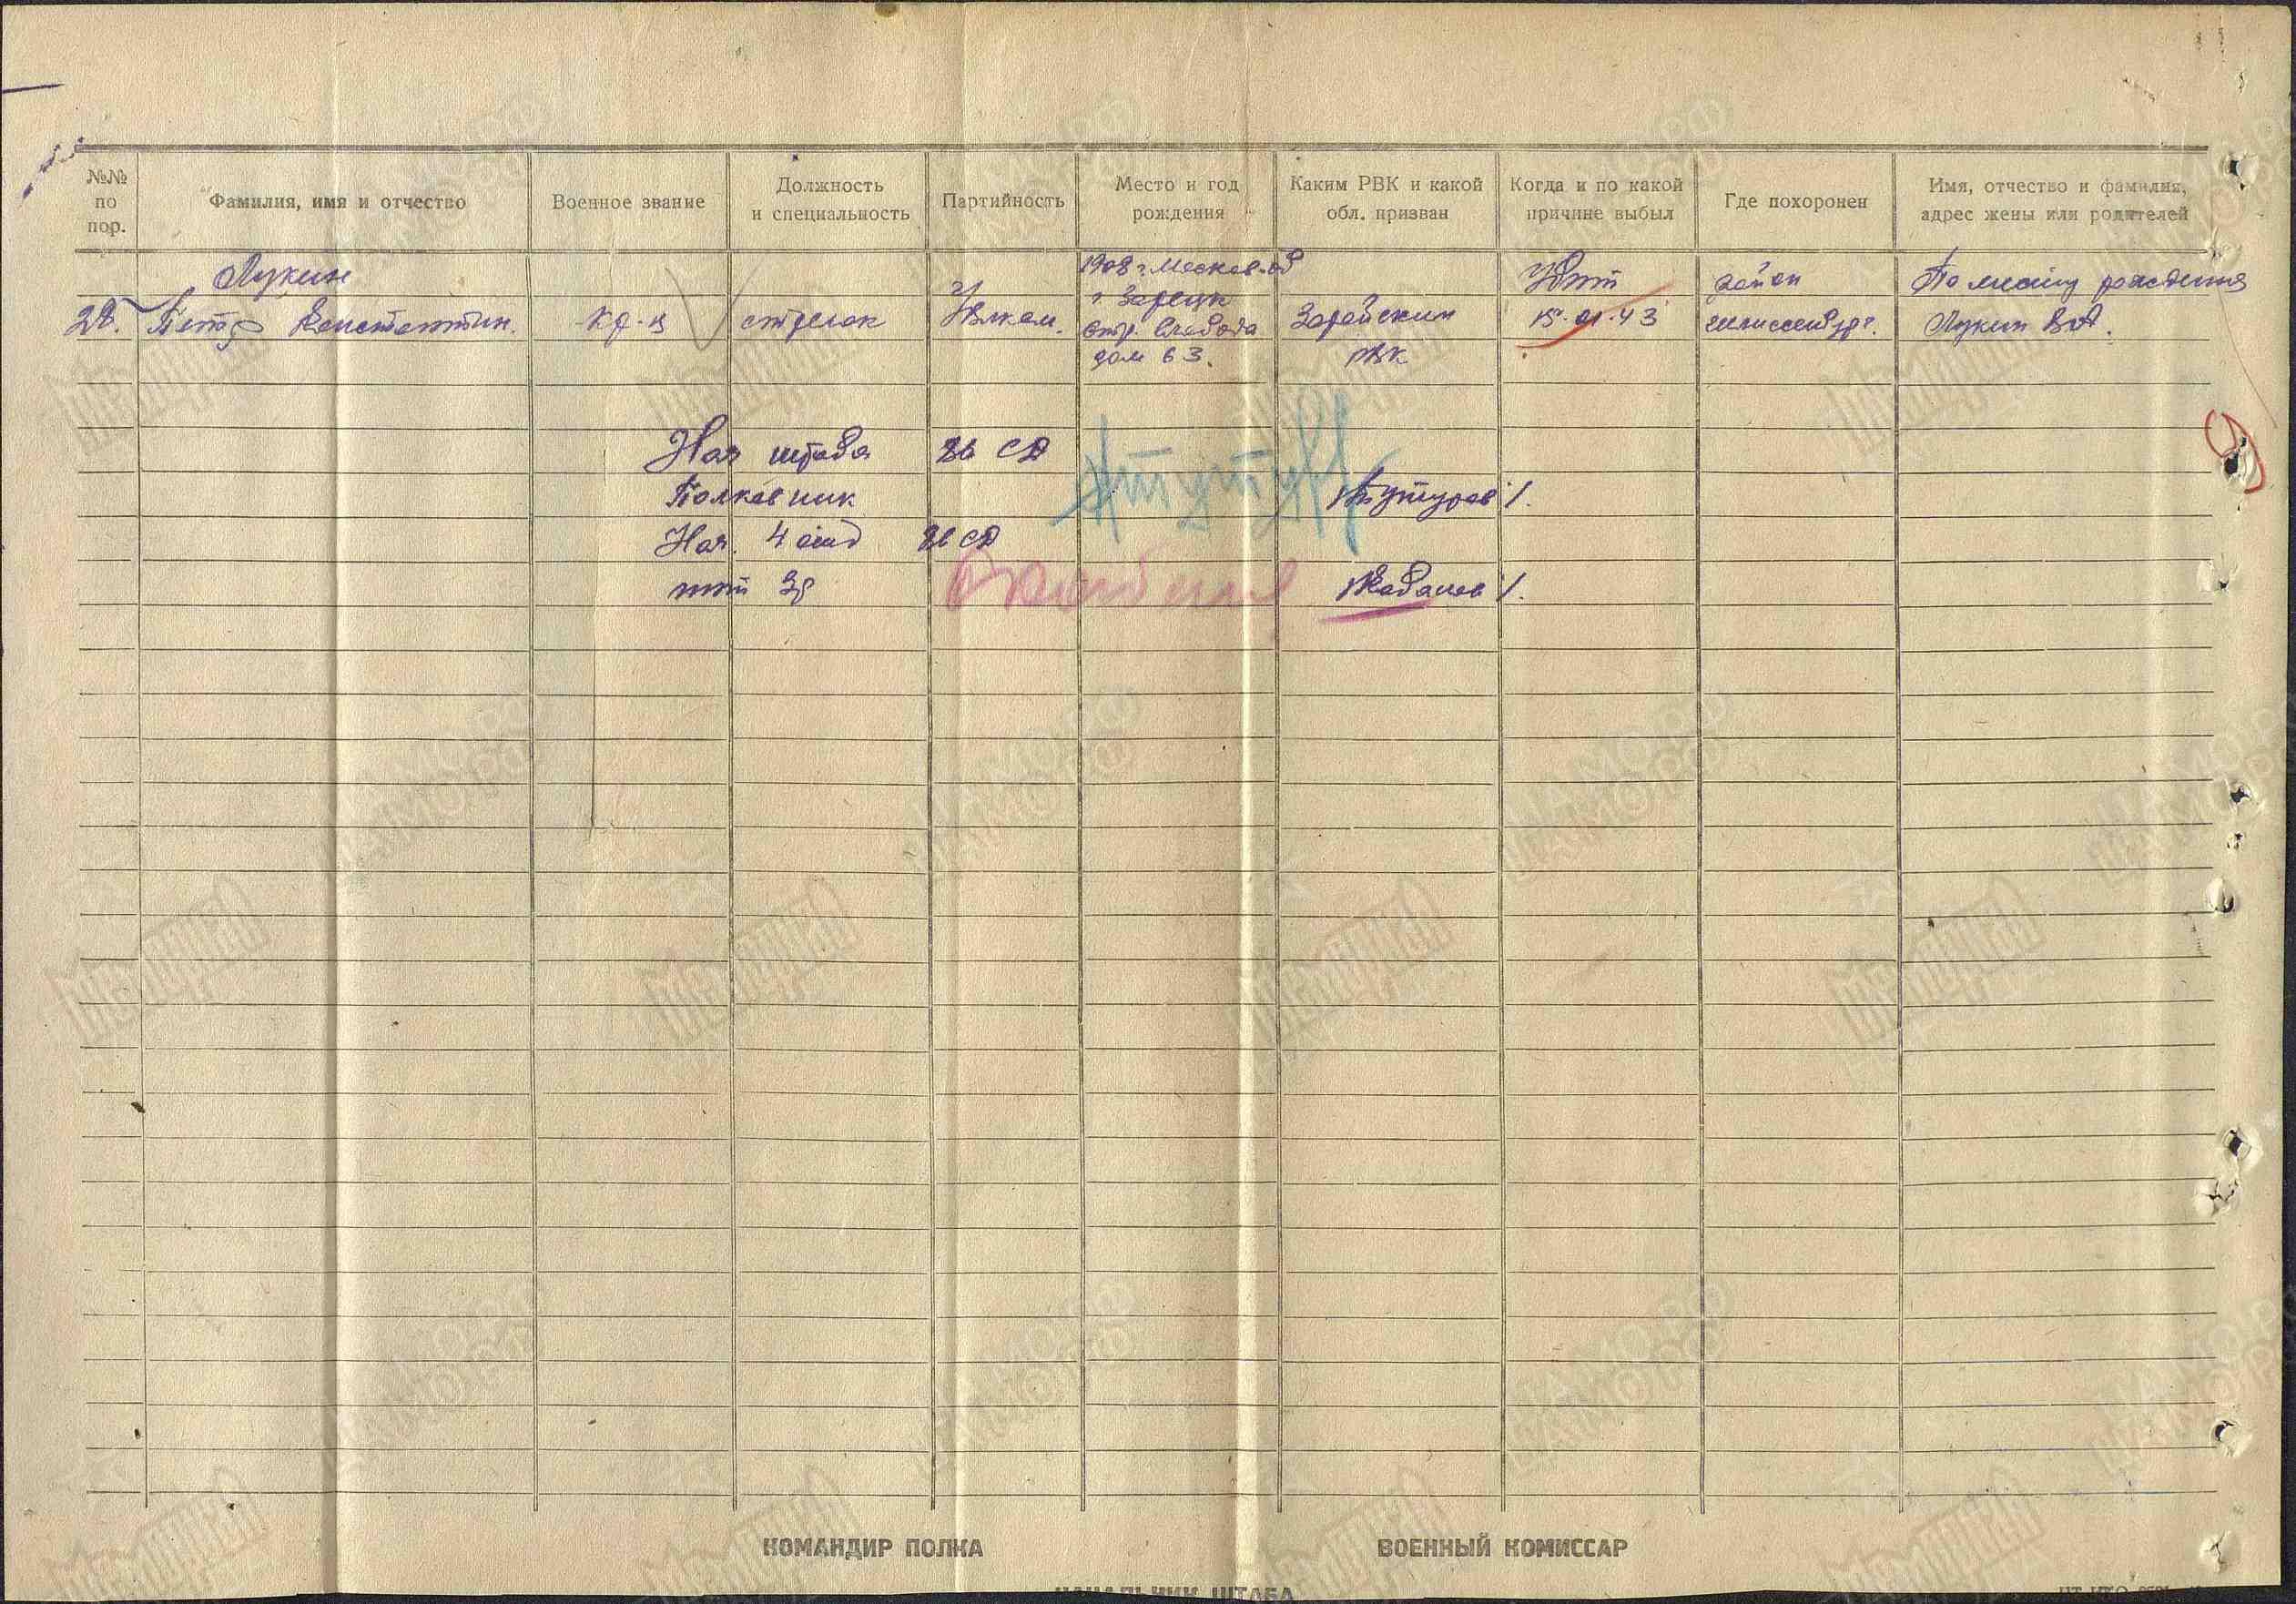 №№ по пор.
Фамилия, имя и отчество
Военное звание
Должность и специальность
Партийность
Место и год рождения
Каким РВК и какой обл. призван
Когда и по какой причине выбыл
Где похоронен
Имя, отчество и фамилия, адрес жены или родителей
28.
Лукин
Петр Константин.
кр-ц
стрелок
1908 г. Москов. об
г
стр. Слобода
дом 63.
Зарайским
РВК
Убит
15.01.43
район
шлиссельбург.
По месту рождения
Лукин В.А.
Нач штаба 86 СД
Полковник
Нач. 4 отд 86 СД
КОМАНДИР ПОЛКА
ВОЕННЫЙ КОМИССАР
НАЧАЛЬНИК ШТАБА